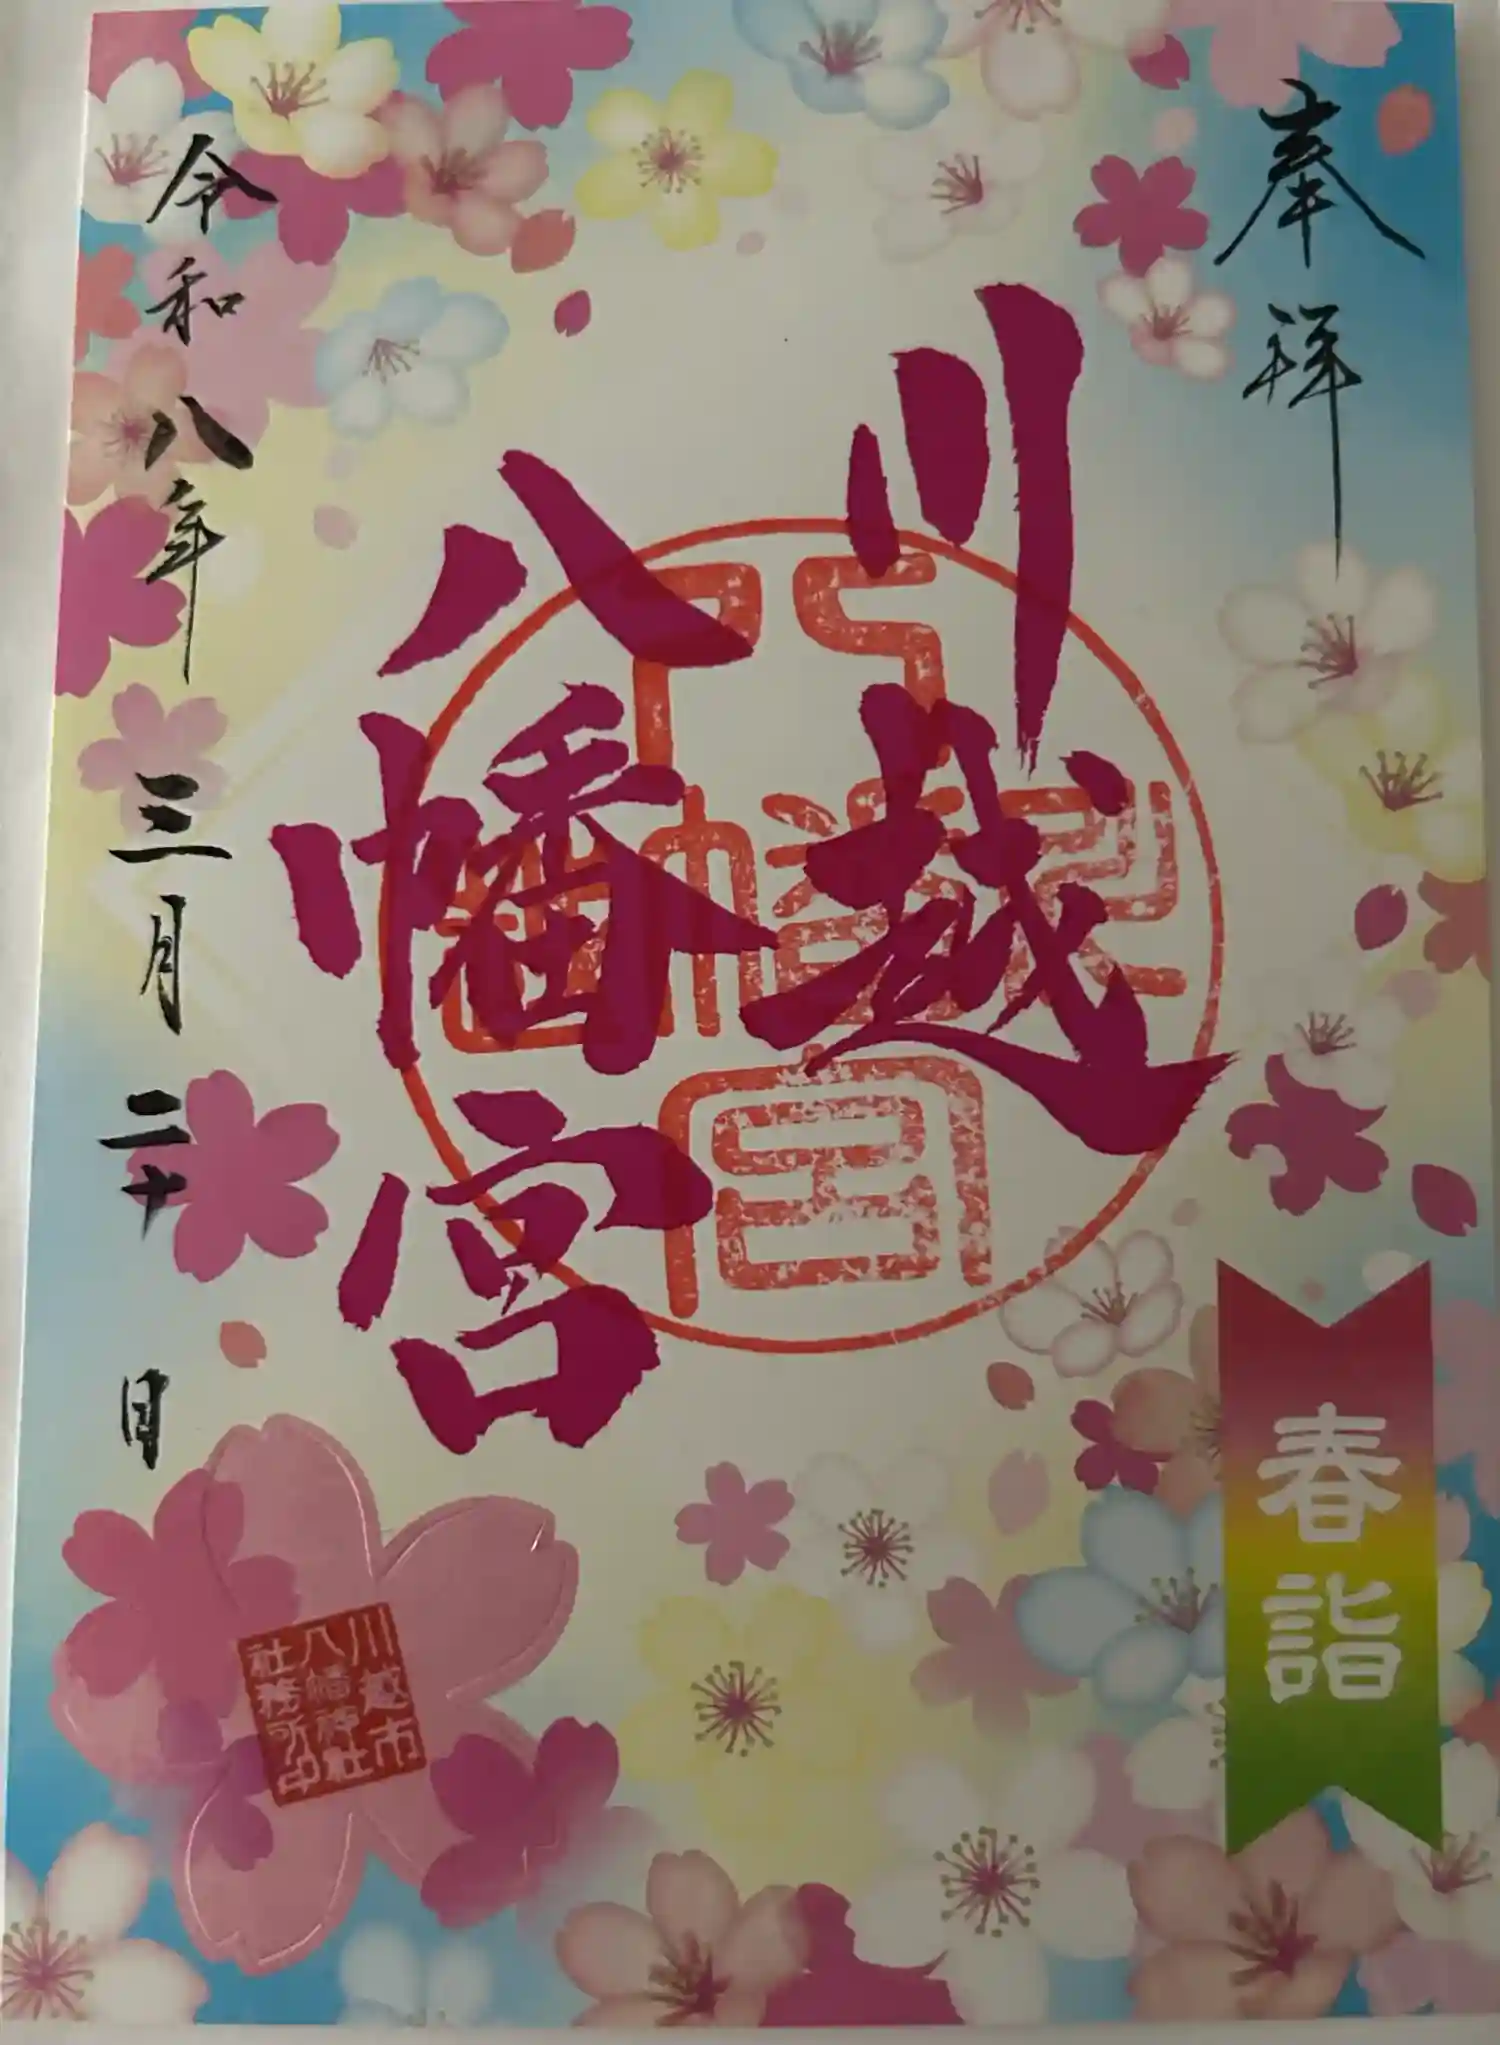 奉拝
川越
八幡宮
令和八年 三月 二十 日
春詣
川越市
八幡神社
社務所印